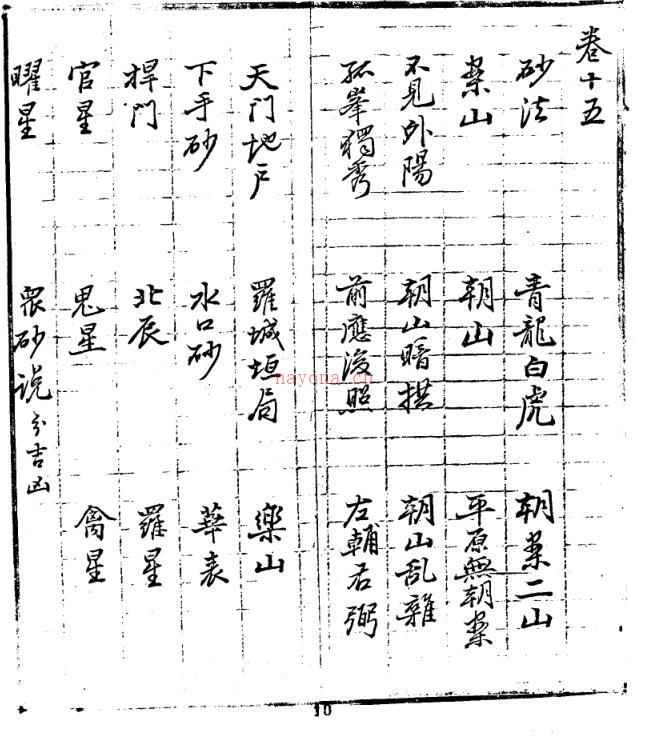 卷十五
砂法 青龍白虎 朝案二山
案山 朝山 平原無朝案
不見外陽 朝山暗拱 朝山乱雜
孤峯獨秀 前應後照 左輔右弼
天门地户 羅城垣局 樂山
下手砂 水口砂 華表
捍门 北辰 羅星
官星 鬼星 禽星
曜星 衆砂说 分吉凶
10
nayona.cn